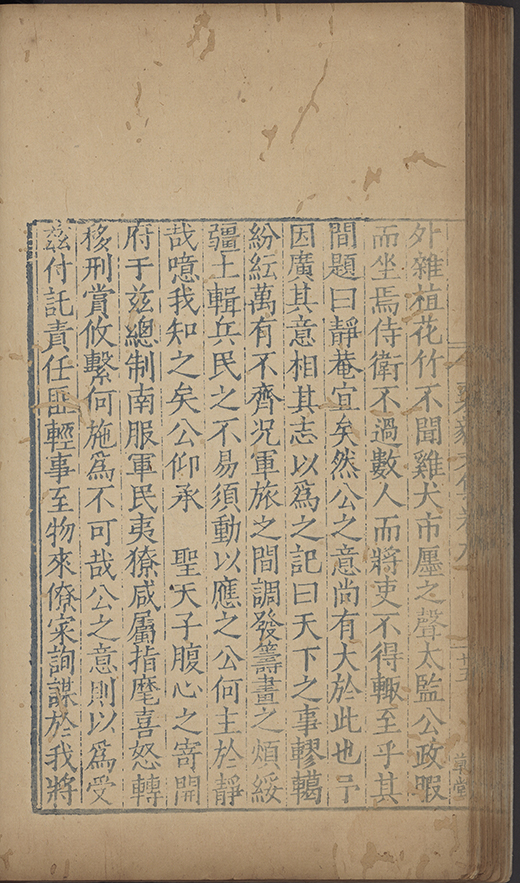 外雜植花竹不聞雞犬市廛之聲太監公政暇
而坐焉侍衛不過數人而將吏不得輙至乎其
間題曰靜菴宜矣然公之意尚有大於此也予
因廣其意相其志以爲之記曰天下之事轇轕
紛紜萬有不齊况軍旅之間調發籌畫之煩綏
疆土輯兵民之不易須動以應之公何主於靜
哉噫我知之矣公仰承　聖天子腹心之寄開
府于兹總制南服軍民夷獠咸屬指麾喜怒轉
移刑賞攸繫何施爲不可哉公之意則以爲受
兹付託責任匪輕事至物來僚寀詢謀於我將